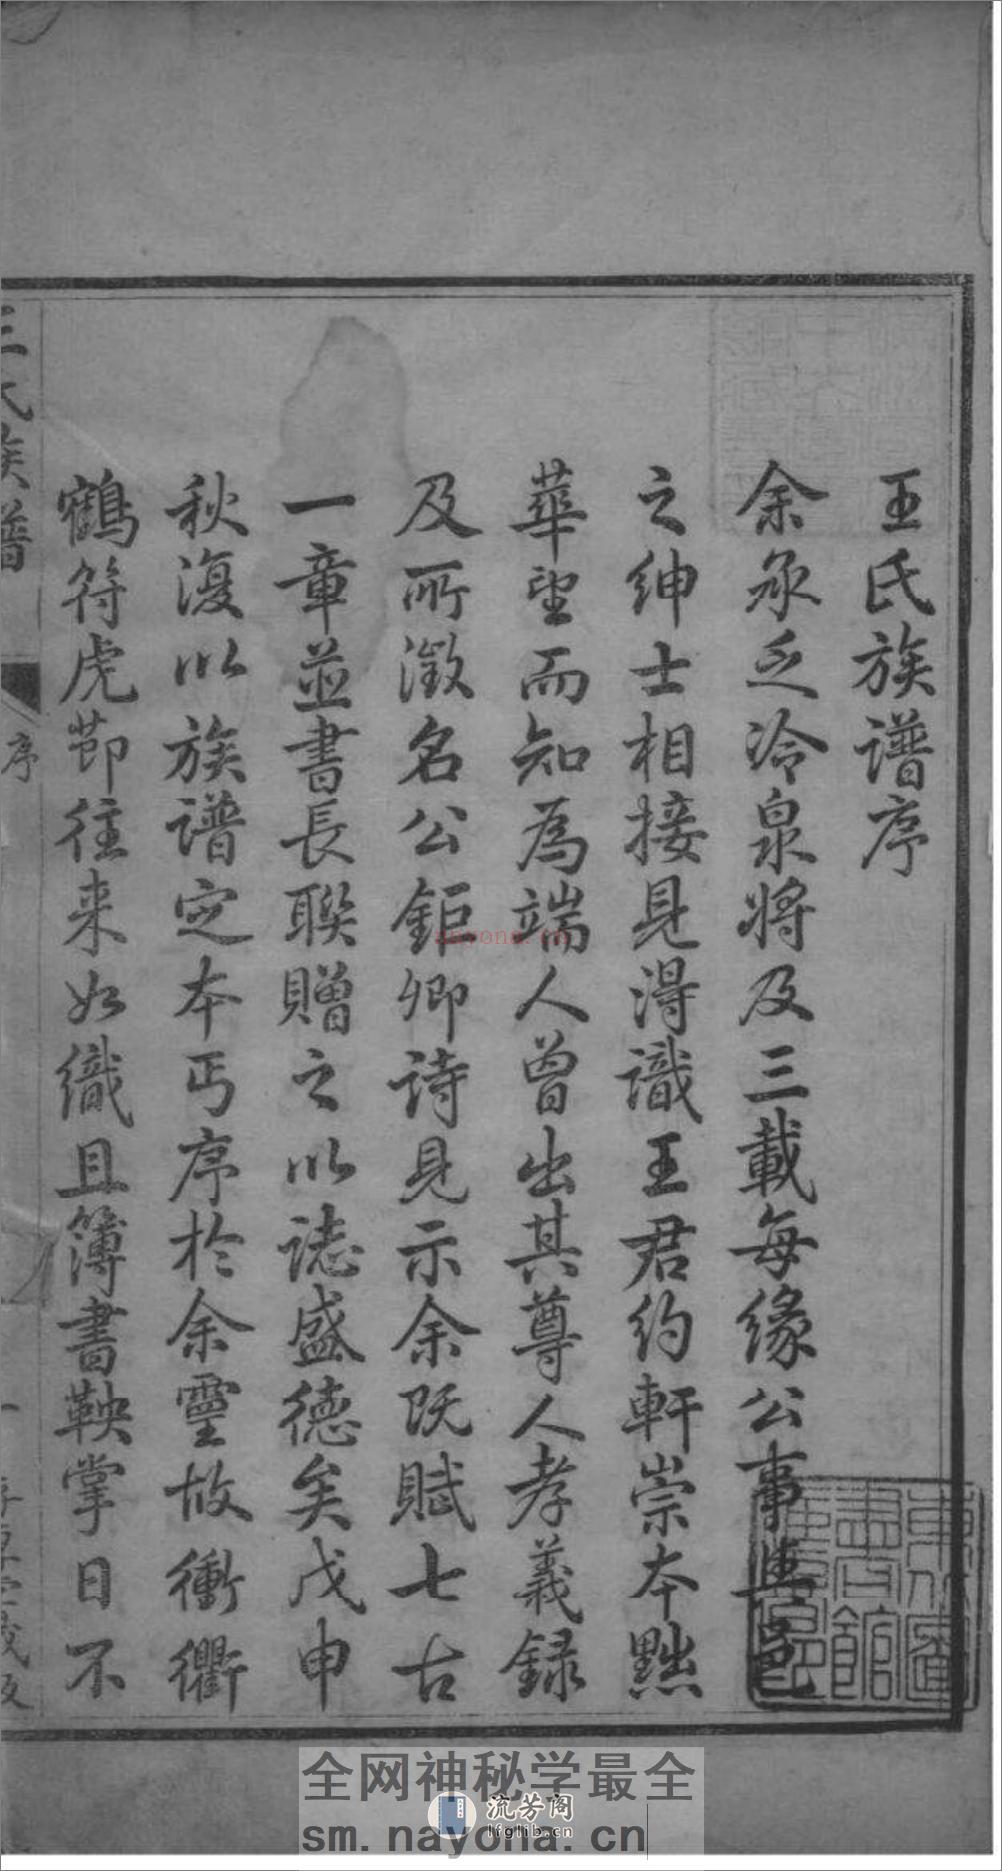 王氏族譜序
余承乏冷泉將及三載每緣公事與邑
之紳士相接見得識王君約軒崇本黜
華望而知為端人曾出其尊人孝義錄
及所徵名公鉅卿詩見示余既賦七古
一章並書長聯贈之以誌盛德矣戊申
秋復以族譜定本丐序於余靈故衝衢
鶴符虎節往來如織且簿書鞅掌日不
王氏族譜
序
一
nayona.cn
全网神秘学最全
流芳阁
lfglib.cn
sm.nayona.cn